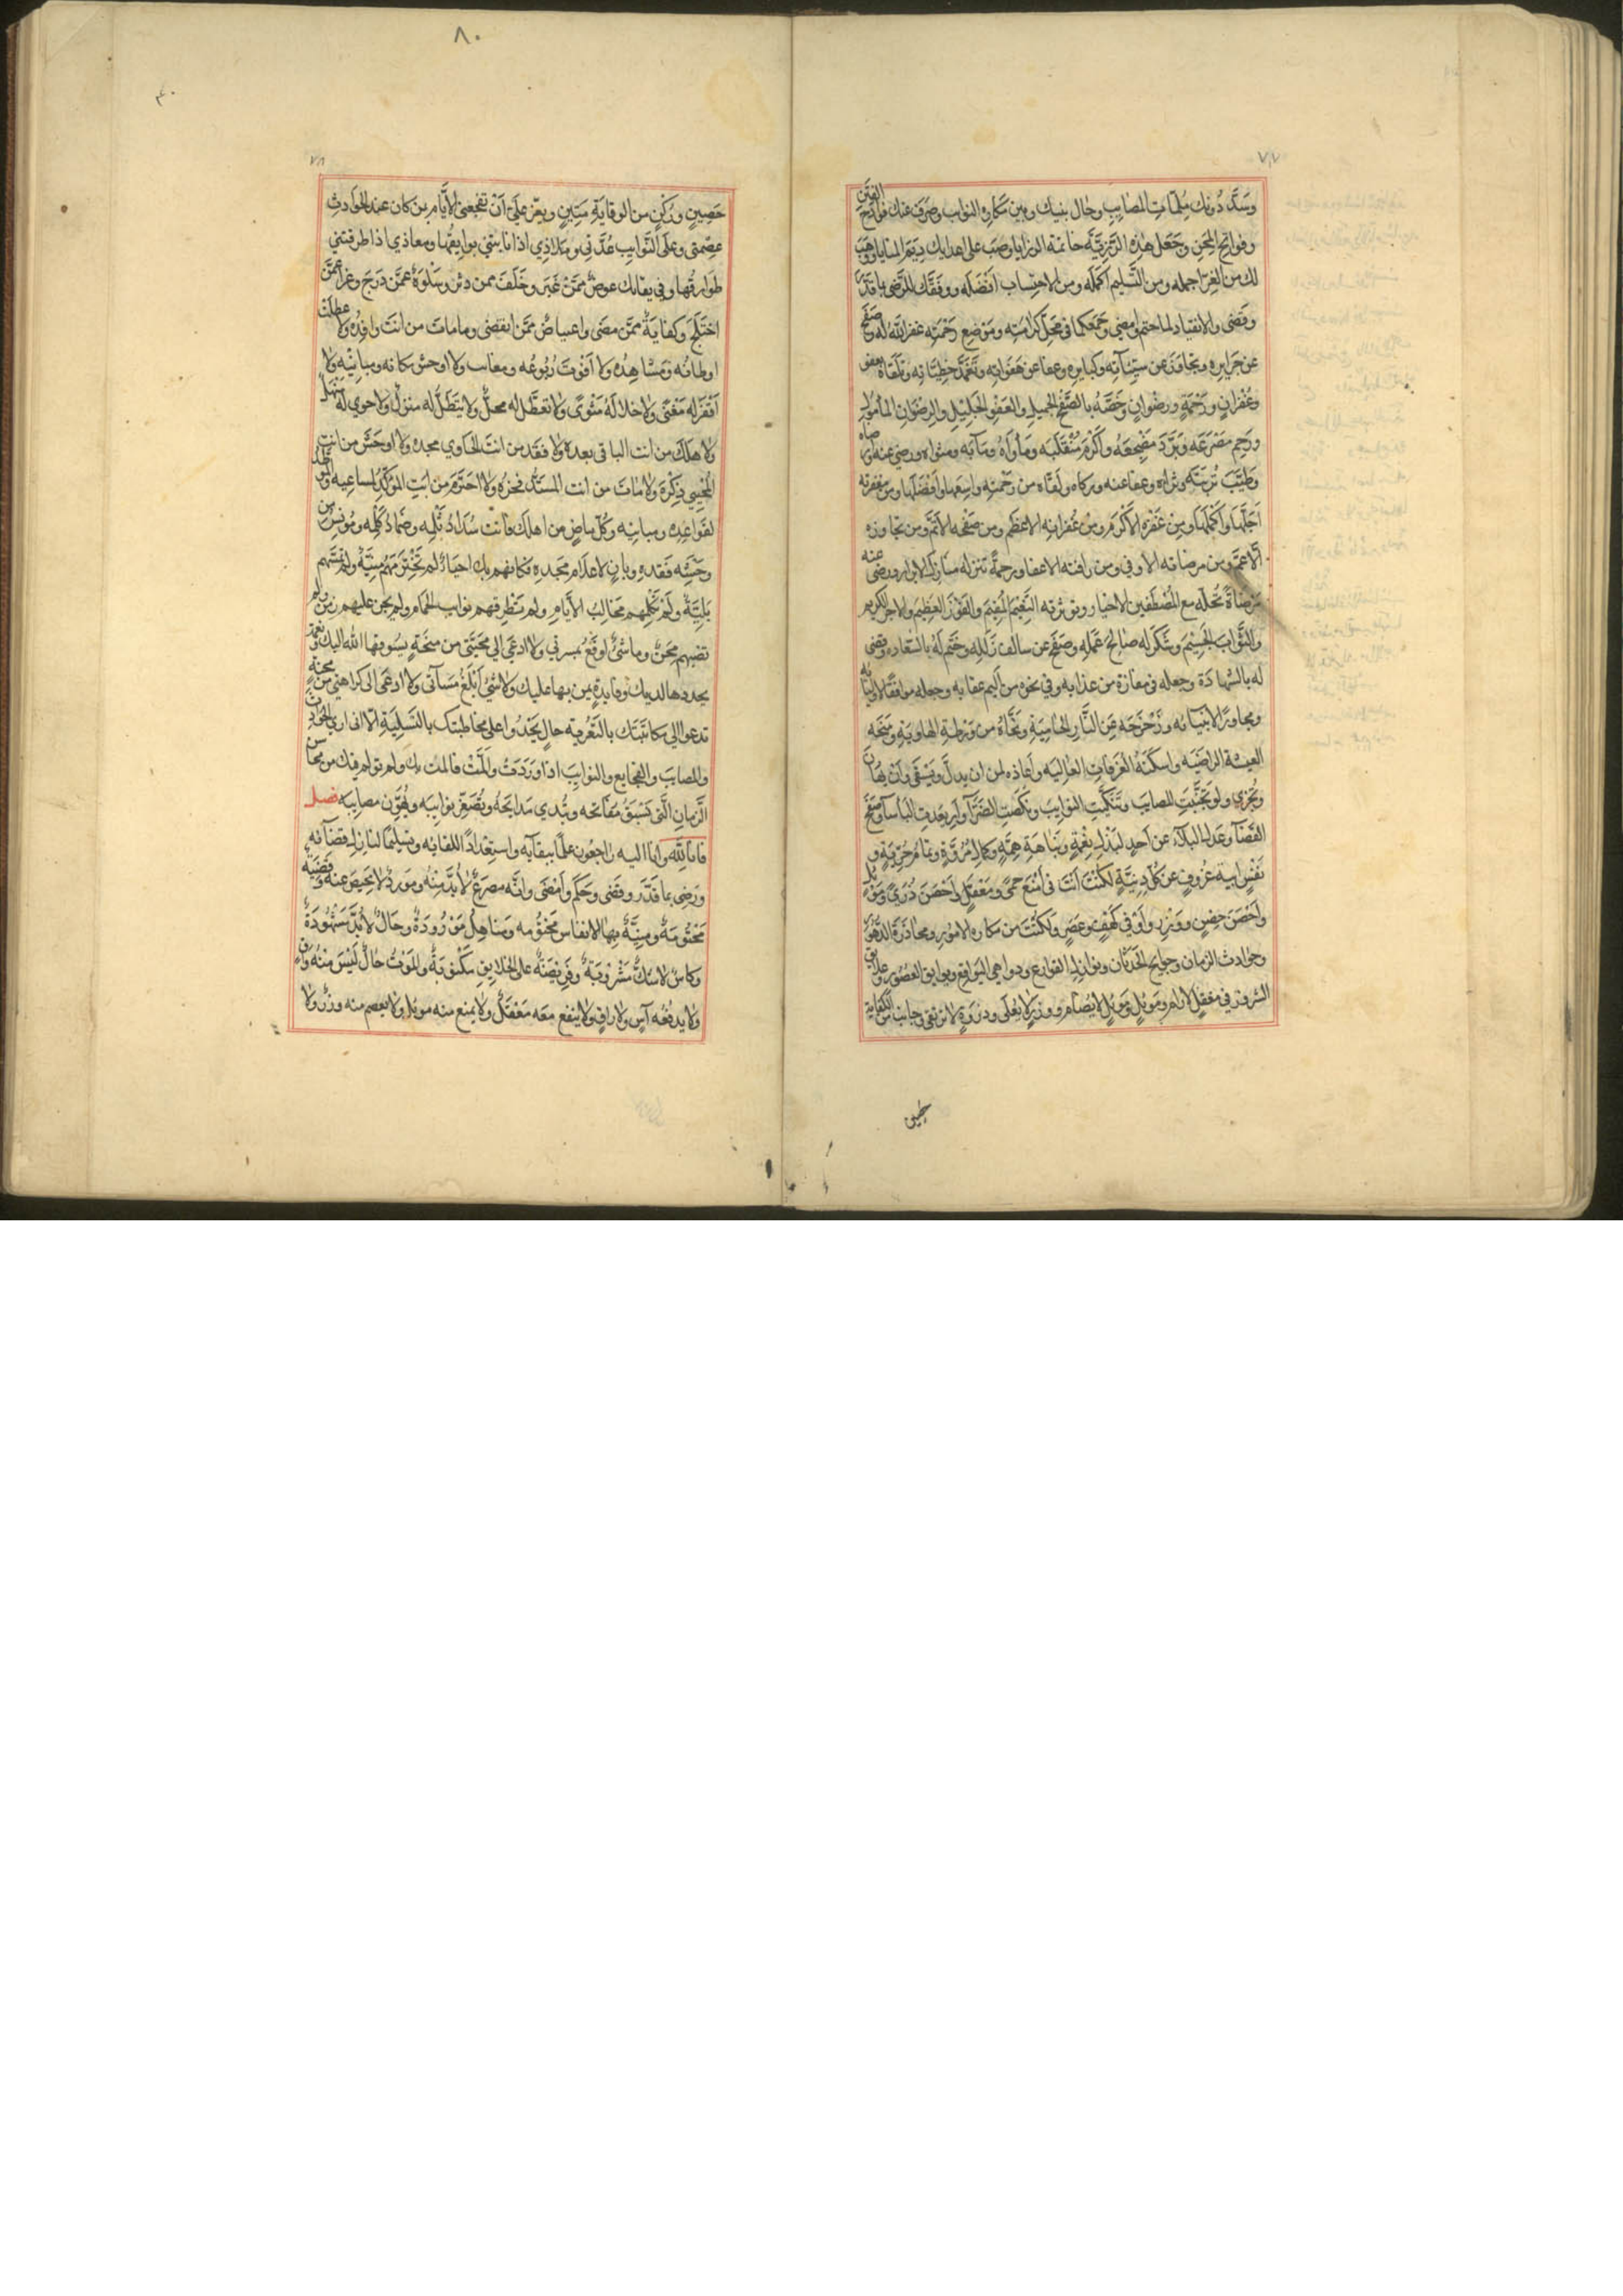 ٧٧
وسَدَّ دُونك مُلمّاتِ المصَايبِ وحال بنيك وبين مكاره النوايب وصَرف عنك فوادح الفتن
وفوايح المِحَنِ وجَعَل هٰذِهِ الرَّزِيَّةَ خاتمة الرزايا وصَبَّ على اعدايك دِيَمَ المنايا ووهَبَ
لك من العزا اجمله ومن التَّسليم اكمَلَه ومن الاحتِسابِ افضَلَه ووفَّقَك للرَّضى بما قَدَّرَ
وقَضى والانقياد لما حتم وامضى وجَمَعَكما فى محَلِّ كرامَتِه ومَوْضِع رَحْمَتِه غفر اللّٰه له وصَفَح
عن جَرايره وتجاوَزَ عن سيِّئآته وكبايره وعفا عن هَفَوَاتِه وتَغَمَّدَ خطيّاته وتلقاه بعفو
وغُفرانٍ ورَحْمَةٍ ورِضْوَانٍ وخَصَّهُ بالصَّفْحِ الجميلِ والعَفْوِ الجَلِيلِ والرِضوَانِ المأمولِ
ورَحِم مَصْرَعَه وبَرَّدَ مضْجَعَهُ وأَكْرَم مُنْقَلَبَه ومَأوَاهُ ومَآبَه ومثواه ورضى عنه وارضاه
وطَيَّبَ تُربَتَه وثراه وعفا عنه وزكاه ولَقّاه من رَحْمتِه واسِعَها وافضَلَها ومن مغفرته
اجَلَّهَا وأكمَلَهَا ومِن غَفْرِه الاكْرَم ومن غُفرانِه الاعظَم ومن صَفْحِه الأتمّ ومن تجاوزه
الأعمّ ومن مرضاته الاوفى ومن رافته الاعفا ورحمةً تنزله منَازِلَ الابرار ورضى عنه
مَرْضَاةً تحُلّه مع المُصْطَفين الاخيار وتورثه النَّعِيمَ المُقِيمَ والفَوْزَ العَظِيمَ والاجر الكريم
والثَّوابَ الجَسِيْمَ وشَكَرَ له صَالِحَ عَمَلِه وصَفَحَ عن سالف زَلَلِه وختَم لَهُ بالسَّعادة وقضى
له بالشَّهادَة وجعله فى مفازة من عذابه وفى نجوه من اليم عقابه وجعله مرافقًا لاوليائه
ومجاورًا لانبيائه وزَحْزَحَه عن النَّارِ الحَامِيَةِ ونَجَّاهُ من وَرْطةِ الهاويَةِ ومنَحَه
العيشة الراضيَه واسكَنَهُ الغُرَفَاتِ العَالِيَه واعَاذه من ان يذلَّ ويَشقَى وان يهَان
ويُخزى ولو تجنَّبتِ المصايب وتنَكَّبتِ النوايبَ ونكَصَتِ الضَّرّآ وابعَدتِ الباسآ وصَفَح
القضَآ وعَدلَ البلآءُ عن اَحدٍ لبَذلِ نِعْمَةٍ ونَبَاهَةِ هِمّةٍ وكمالِ مُرُوَّةٍ وتمامُ حُرِّيةٍ و
نَفْسٍ ابيةٍ عزوفٍ عن كُلِّ دنيَّةٍ لكُنْتَ اَنْتَ فى اَمْنَعِ حِمًى ومَعْقِلٍ واحْصَن ذُرًى ومَوْئل
واَحْصَنِ حِصْنٍ ووَزَرٍ واَوْقى كَهْفٍ وعَصَرٍ ولَكنْتَ من مكاره الامُور ومحاذَرَة الدّهُور
وحوادث الزمان وجوايح الحَدثان ونوازل القوارع ودواهى البوايق وبوايق العصُور وعلايق
الشرور فى معقلٍ لا يرام ومَوْئلٍ لا يُضام ووزرٍ لا يُعلى وذُروَةٍ لا ترتقى وجانب من الكفاية
حصين
٨٠
٤٠
٧٨
حَصِينٍ ورُكْنٍ من الوقايَةِ مَتِينٍ ويعزّ علىّ اَنْ تفجعنى الأيَّام بمن كان عند الحوادِث
عِصْمَتى وعلى النَّوايبِ عُدَّتى وملاذى اذا نابتنى بوايقُها ومعاذي اذا طرقتنى
طوارقُها وفي بقائك عوضٌ ممَّنْ غَبَر وخَلَفٌ ممن دثر وسَلْوةٌ عمَّن درَج وعزا عمَّن
اختَلَجَ وكفايَةٌ ممَّن مضَى واعتياضٌ ممَّن انقضى وما ماتَ من انت رافِدُه ولا عطلت
اوطانُه ومَشاهِدُه ولا اَقْوَتْ رُبُوعُه ومغانيه ولا اوحش مكانه ومبانيْه ولا
اَقفَرَ له مَغْنَى ولا خلا لَهُ مَثْوىً ولا تعطّل له محلٌّ ولا يتعطّل له منزل ولا حوى له منهل
ولا هلك من انت الباقى بعده ولا فقد من انت الحَاوي مجده ولا اوحَشَ من انت
المُحْيِي ذِكْرَهُ ولا مات من انت المستَدّ فخرُه ولا احترَمَ من انتِ المؤكّدُ لمساعيه والموطّد
لقواعِدِه ومبانيه وكُلّ ماضٍ من اهلك فانت سُدادُ ثُلَمِه وضَمَادُ كَلْمِه ومُونِس من
وحَشْه فقده وبانٍ لاعلَام مجدِه فكانهم بك احياءٌ لم تَخْتَرِمْهُمْ مَنِيَّةٌ ولم تَغْشَهم
بَلِيَّةٌ ولم تكلِمْهم مَخَالِبُ الأيَّامِ ولم تطرقهم نوايب الحِمام ولم يجن عليهم زمن ولم
تضبهم مِحَنٌ وما شىءٌ اوقَعُ بمسرتي ولا ادعى الي محبّتى من منحَةٍ يسُوقها اللّٰه اليك ونعمة
يجددها لديك وفايدةٍ يمن بها عليك ولا شئٌ اَبْلَغُ مسآتى ولا ادعَى الى كراهتى من محنةٍ
تدعوا الى مكاتبَتك بالتَّعزية حالٍ يَحْدُوا على مخاطبتك بالتَّسلِيَةِ الّا انى ارى الحوادِث
والمصايبَ والفجايع والنوايبَ اذا وَرَدَتْ والمَّتْ فالمت بك ولم تولم فيك من محاسن
الزَّمانِ الَّتى تَسْبِقُ مَفَاتحه وتُبْدي مَدايَحَهُ وتُصَغِّر نوايبَه وتُهوّن مصايبَه فصل
فانا لِلّٰه وانا اليه راجعُون علمًا ببقآئه واستِعْدادًا للقائه وتسليمًا لنازِلِ قضآئه
ورَضِى بما قَدَّر وقضى وحَكَم وأمْضَى وانَّه مصرَعٌ لا بُدَّ مِنْهُ ومَورِدٌ لا مَحِيصَ عنه وقضيّة
مَحْتُومَةٌ ومنيَّةٌ بها الانفاس مخْتُومه ومناهِلٌ مَوْرُودَةٌ وحَالٌ لا بُدَّ مَشْهُودَةٌ
وكاسٌ لا شكَّ مَشْرُوبَةٌ وفَرِيْضَةٌ على الخلايقِ مَكْتوبةٌ والمَوْتُ حالٌ لَيْسَ منْهُ واقٍ
ولا يدفعُه آسٍ ولا راقٍ ولا ينفع مَعَه مَعْقلٌ ولا يمنع منه موئلٌ ولا يعصم منه وزرٌ ولا